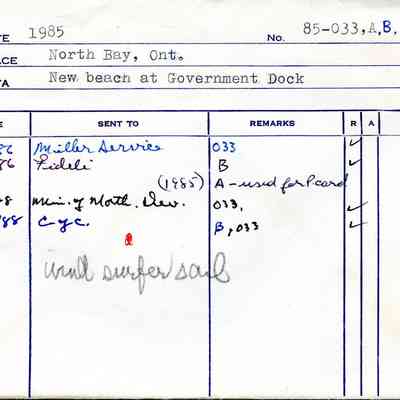 TE 1985 No. 85-033,A,B,
ACE North Bay, Ont.
TA New beach at Government Dock
E SENT TO REMARKS R A
86 Miller Service 033 ✓
86 Fideli B ✓
(1985) A-used for Pcard
8 Min. of North. Dev. 033, ✓
/88 C y C. B, 033 ✓
wind surfer sails